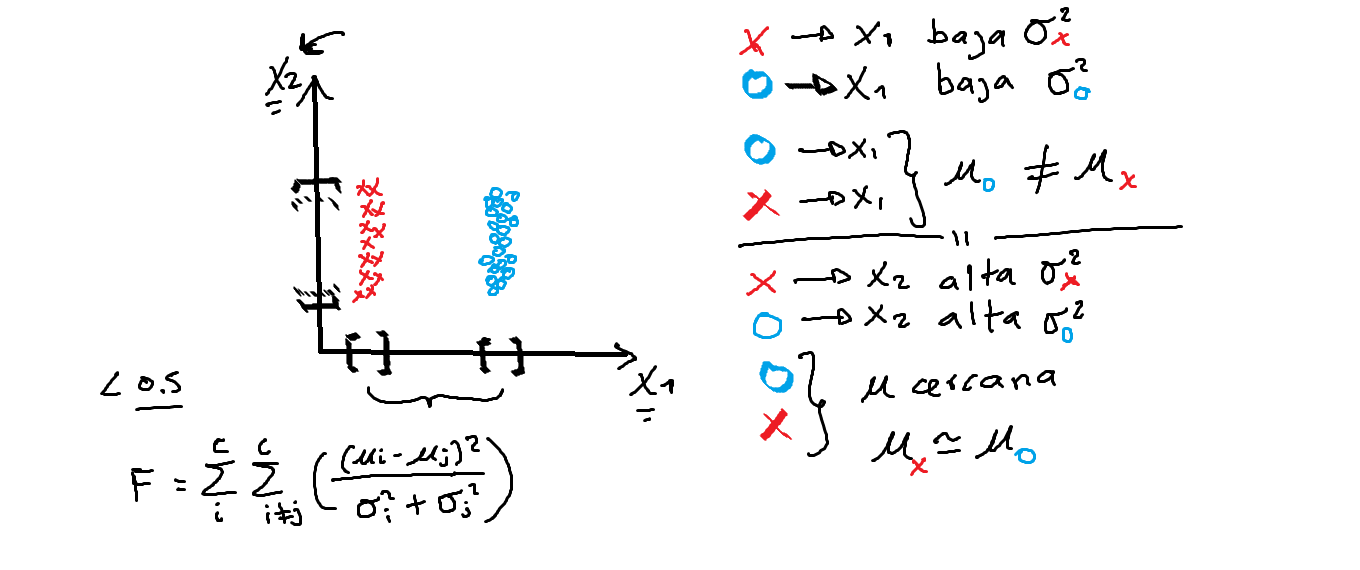 X2
X1
< 0.5
F = Σ_i^c Σ_{i≠j}^c ( (μi - μj)² / (σi² + σj²) )
x → x1 baja σ²x
o → x1 baja σ²o
o → x1
x → x1
} μo ≠ μx
x → x2 alta σ²x
o → x2 alta σ²o
o
x
} μ cercana
μx ≃ μo